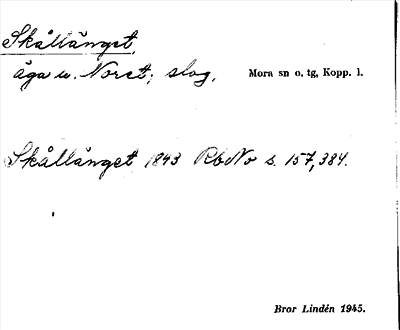 Skållänget,
äga u. Noret; slog, Mora sn o. tg, Kopp. l.
Skållänget 1843 RbNo s. 157, 384.
Bror Lindén 1945.